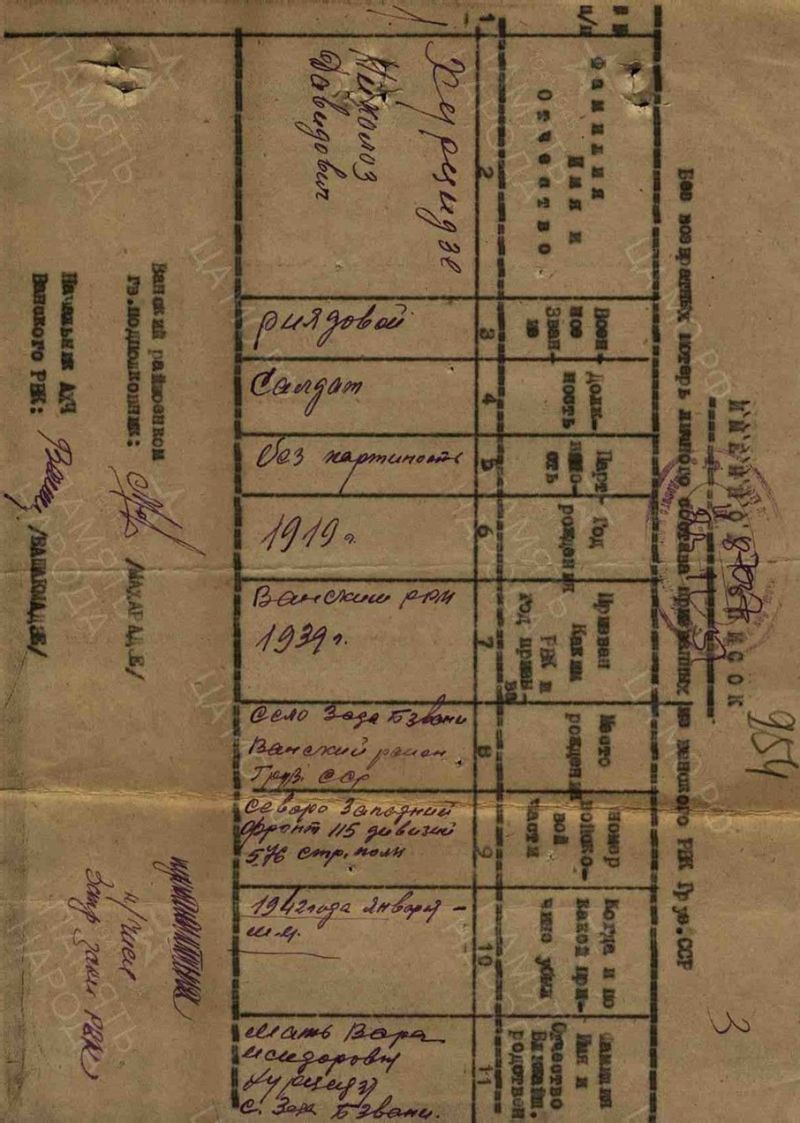 954
3
ИМЕННОЙ СПИСОК
Без возвратных потерь личного состава призванных из Ванского РВК Груз.ССР
п/п
Фамилия
Имя и
отчество
Воен-
ное
Зван-
ие
Долж-
ность
Парт-
ийно-
сть
Год
рождения
Призван
Каким
РВК и
год призы-
ва
Место
рождения
номер
войско-
вой
части
Когда и по
какой при-
чине убыл
Фамилия
Имя и
Отчество
Ближайш.
родствен
1 2 3 4 5 6 7 8 9 10 11
1
Хурцидзе
Николоз
Давидович
риядовой
Салдат
без партиность
1919 г.
Ванскии рвк
1939 г.
село Зеда Бзвани
Ванский район
Груз. ССР
Северо Западний
фронт 115 дивизий
576 стр. полк
1942 года Января -
Мать Вара
Исидоровна
Хурцидзе
с. Зеда Бзвани.
Ванский райвоенком
гв.подполковник: /МАХАРАДЗЕ/
Начальник АХЧ
Ванского РВК: /ВАШАКМАДЗЕ/
ПАМЯТЬ
НАРОДА
ЦАМО РФ